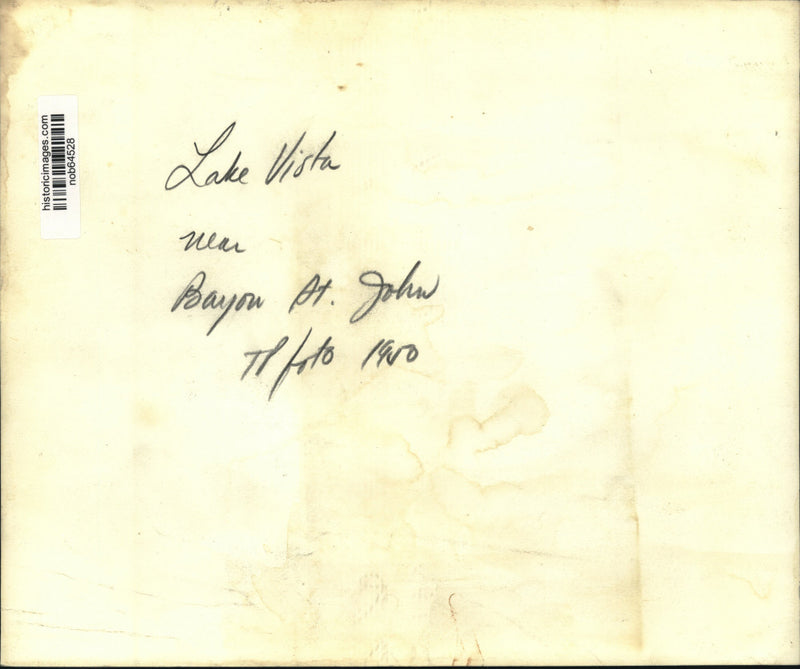 historicimages.com
nob64528
Lake Vista
near
Bayou St. John
TP foto 1950